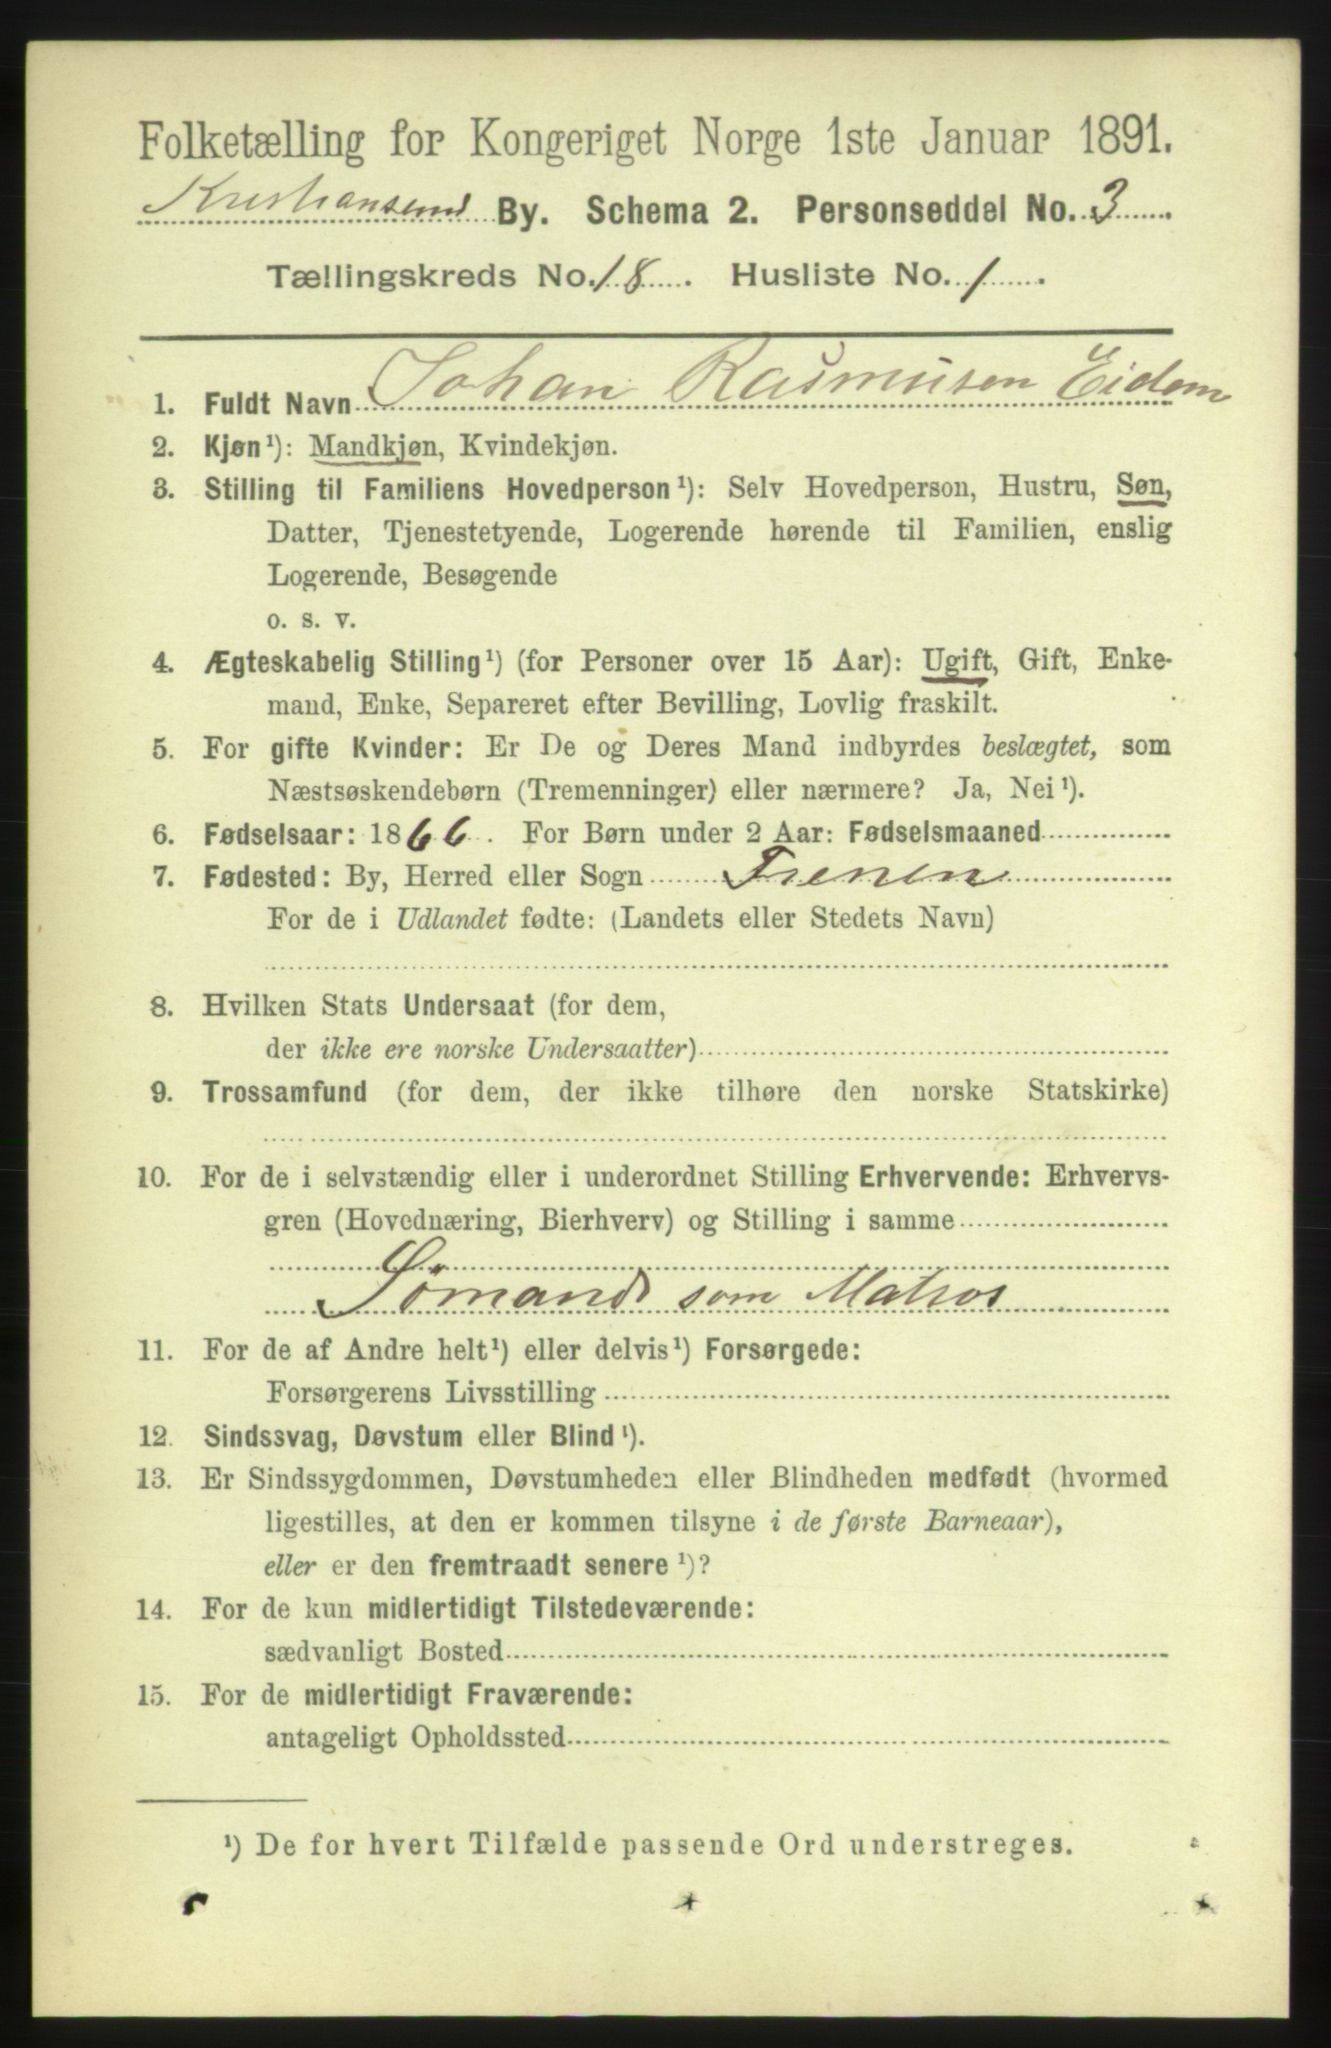 Folketælling for Kongeriget Norge 1ste Januar 1891.
Kristiansund By. Schema 2. Personseddel No. 3.
Tællingskreds No. 18. Husliste No. 1.
1. Fuldt Navn Johan Rasmusen Eidem
2. Kjøn¹): Mandkjøn, Kvindekjøn.
3. Stilling til Familiens Hovedperson¹): Selv Hovedperson, Hustru, Søn,
Datter, Tjenestetyende, Logerende hørende til Familien, enslig
Logerende, Besøgende
o. s. v.
4. Ægteskabelig Stilling¹) (for Personer over 15 Aar): Ugift, Gift, Enke-
mand, Enke, Separeret efter Bevilling, Lovlig fraskilt.
5. For gifte Kvinder: Er De og Deres Mand indbyrdes beslægtet, som
Næstsøskendebørn (Tremenninger) eller nærmere? Ja, Nei¹).
6. Fødselsaar: 1866. For Børn under 2 Aar: Fødselsmaaned
7. Fødested: By, Herred eller Sogn
For de i Udlandet fødte: (Landets eller Stedets Navn)
8. Hvilken Stats Undersaat (for dem,
der ikke ere norske Undersaatter)
9. Trossamfund (for dem, der ikke tilhøre den norske Statskirke)
10. For de i selvstændig eller i underordnet Stilling Erhvervende: Erhvervs-
gren (Hovednæring, Bierhverv) og Stilling i samme
Sømand som Matros
11. For de af Andre helt¹) eller delvis¹) Forsørgede:
Forsørgerens Livsstilling
12. Sindssvag, Døvstum eller Blind¹).
13. Er Sindssygdommen, Døvstumheden eller Blindheden medfødt (hvormed
ligestilles, at den er kommen tilsyne i de første Barneaar),
eller er den fremtraadt senere¹)?
14. For de kun midlertidigt Tilstedeværende:
sædvanligt Bosted
15. For de midlertidigt Fraværende:
antageligt Opholdssted
¹) De for hvert Tilfælde passende Ord understreges.